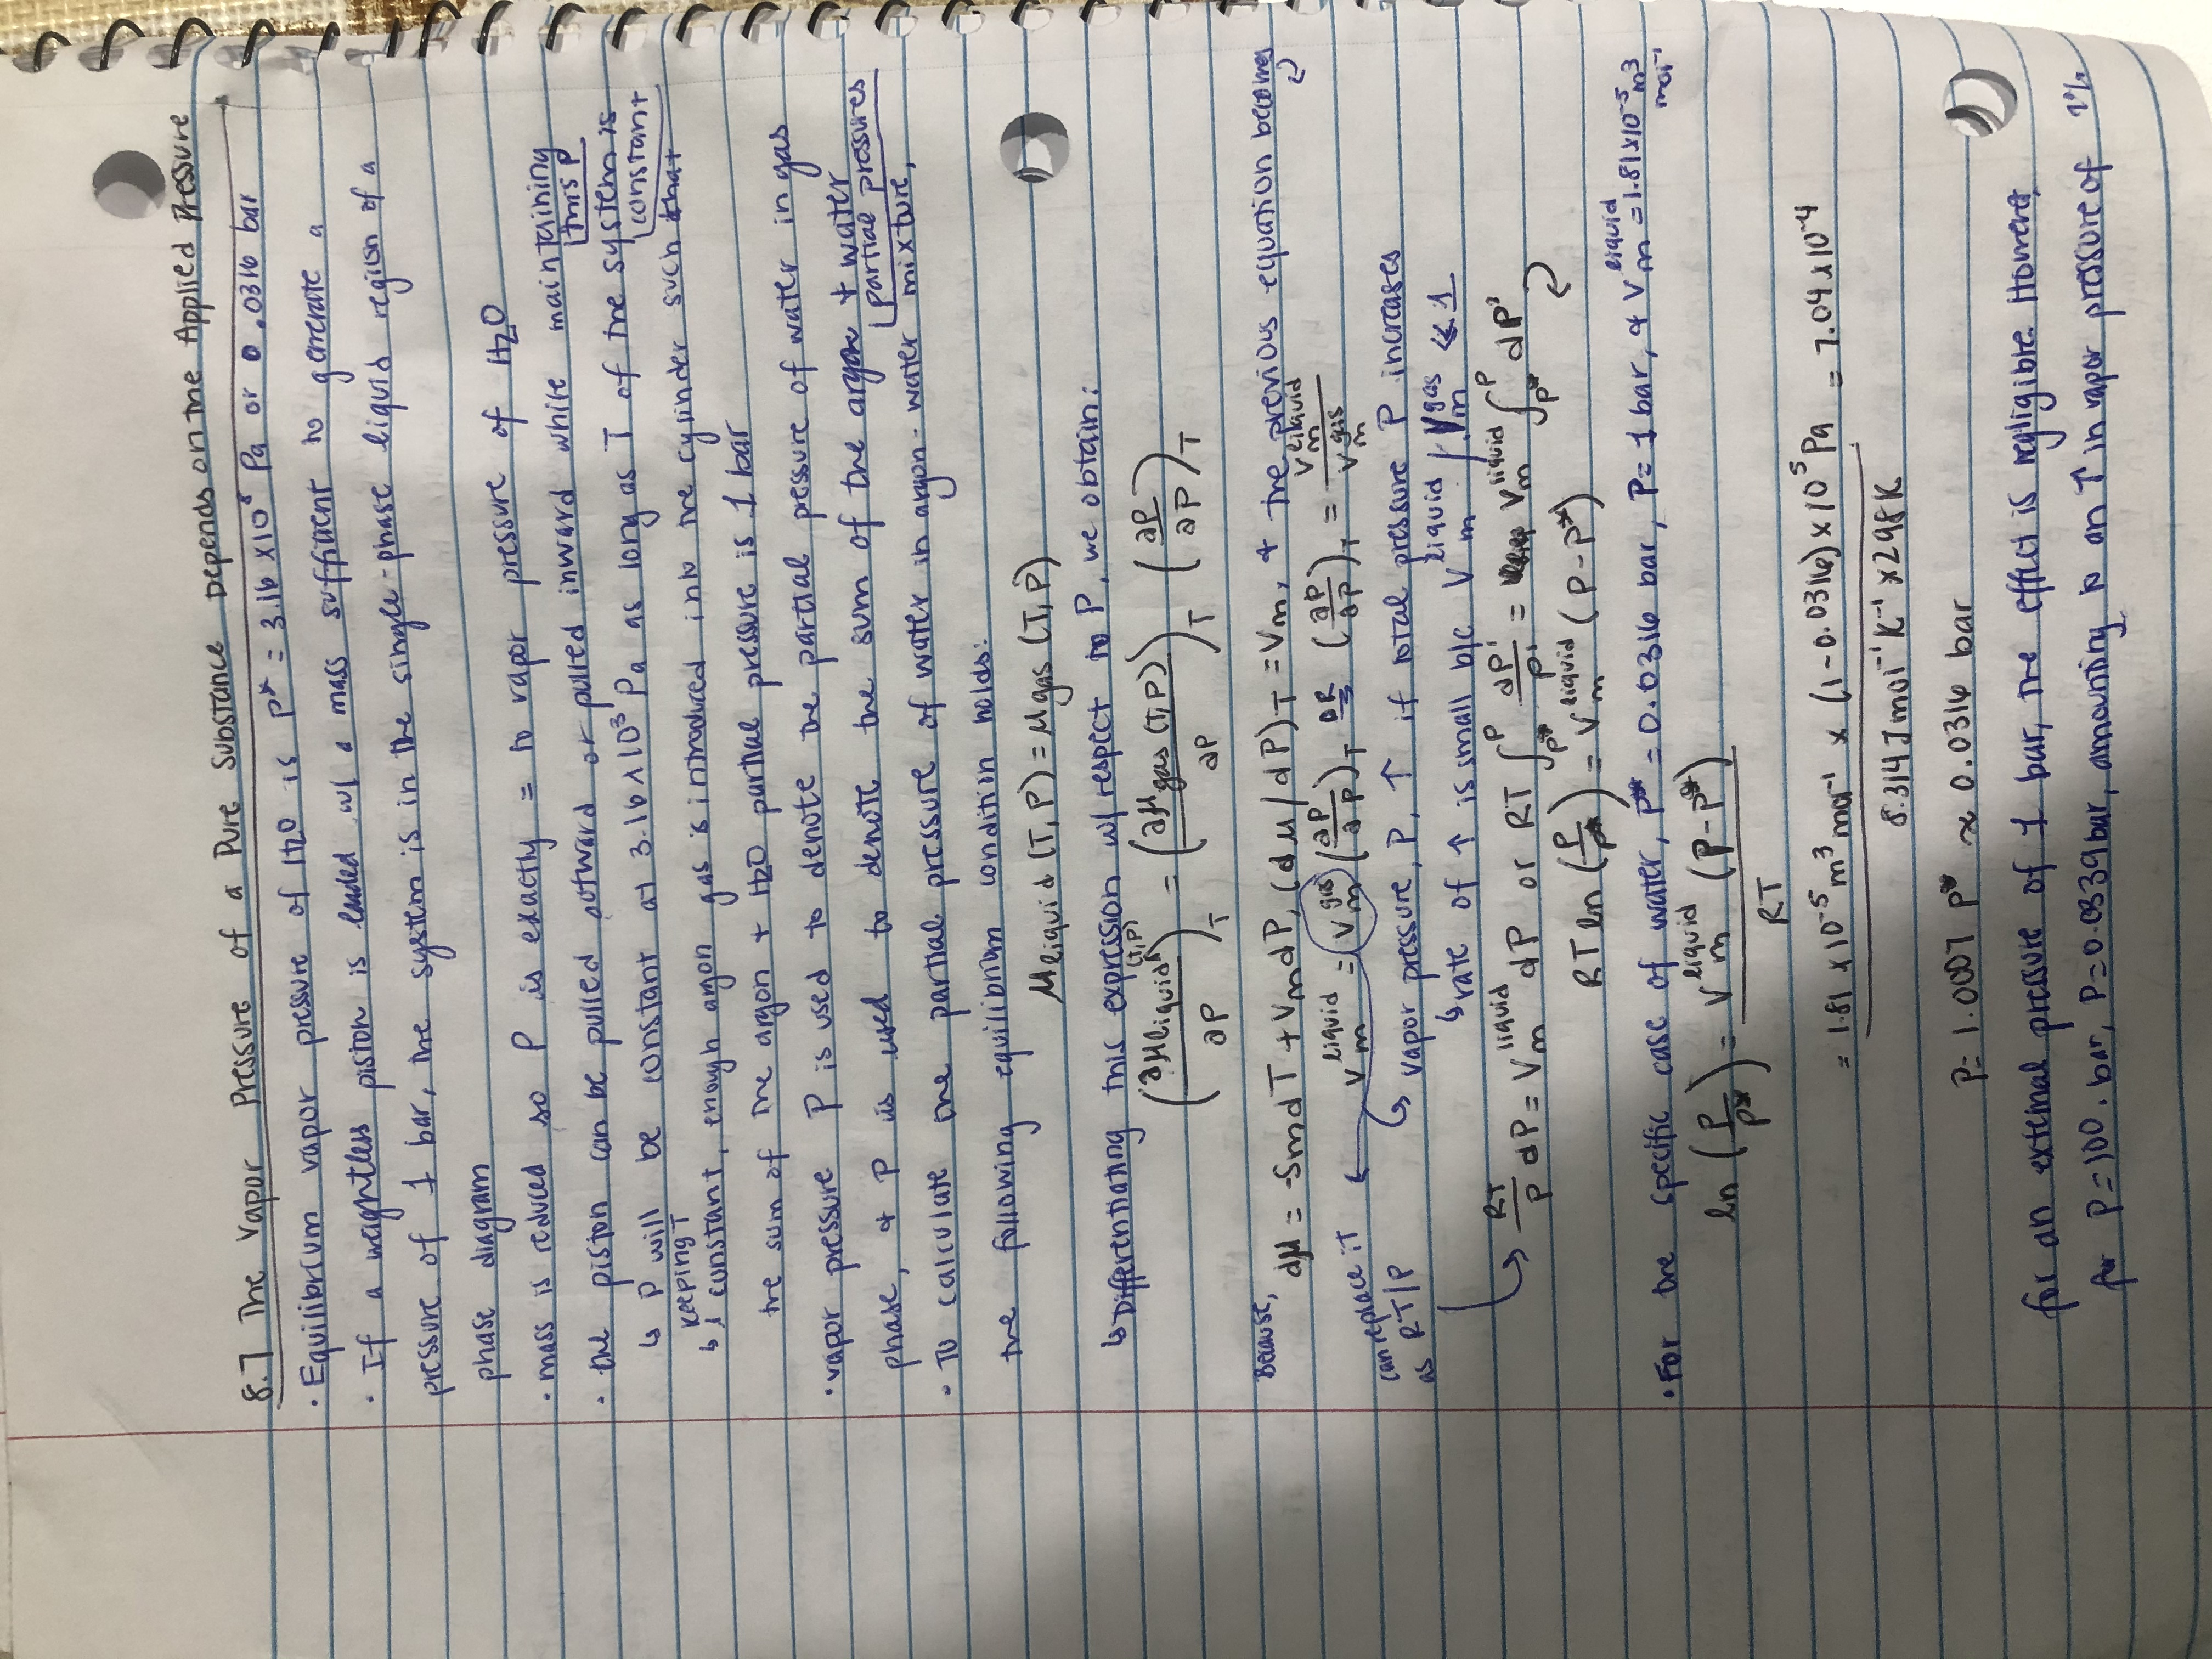 8.7 The Vapor Pressure of a Pure Substance Depends on the Applied Pressure
· Equilibrium vapor pressure of H2O is P* = 3.16 x10⁵ Pa or 0.0316 bar
· If a weightless piston is loaded w/ a mass suffitient to generate a
pressure of 1 bar, the system is in the single-phase liquid region of a
phase diagram
· mass is reduced so P is exactly = to vapor pressure of H2O
· the piston can be pulled outward or pulled inward while maintaining
this P
↳ P will be constant at 3.16x10³ Pa as long as T of the system is
constant
keeping T
↳ ∧ constant, enough argon gas is introduced into the cylinder such that
the sum of the argon + H2O partial pressure is 1 bar
· vapor pressure P is used to denote the partial pressure of water in gas
phase, & P is used to denote the sum of the argon & water
partial pressures
· To calculate the partial pressure of water in argon-water mixture,
the following equilibrium condition holds:
μliquid (T, P) = μgas (T, P)
↳ Differentiating this expression w/ respect to P, we obtain:
(∂μliquid (T,P)/∂P)T = (∂μgas (T,P)/∂P)T (∂P/∂P)T
Because,
dμ = -SmdT + VmdP, (dμ/dP)T = Vm, & the previous equation becomes
Vm^liquid = Vm^gas (∂P/∂P)T OR (∂P/∂P)T = Vm^liquid / Vm^gas
can replace it
as RT/P
vapor pressure, P, ↑ if total pressure P increases
↳ rate of ↑ is small b/c Vm^liquid / Vm^gas ≪ 1
RT/P dP = Vm^liquid dP or RT ∫P*^P dP'/P' = Vm^liquid ∫P*^P dP'
RT ln (P/P*) = Vm^liquid (P-P*)
· For the specific case of water, P* = 0.0316 bar, P= 1 bar, & Vm^liquid = 1.81x10⁻⁵ m³ mol⁻¹
ln (P/P*) = Vm^liquid (P-P*) / RT
= 1.81 x 10⁻⁵ m³ mol⁻¹ x (1-0.0316) x 10⁵ Pa / 8.314 J mol⁻¹ K⁻¹ x 298 K = 7.04 x 10⁻⁴
P= 1.0007 P* ≈ 0.0316 bar
for an external pressure of 1 bar, the effect is negligible. However,
for P=100. bar, P=0.0339 bar, amounting to an ↑ in vapor pressure of 7%